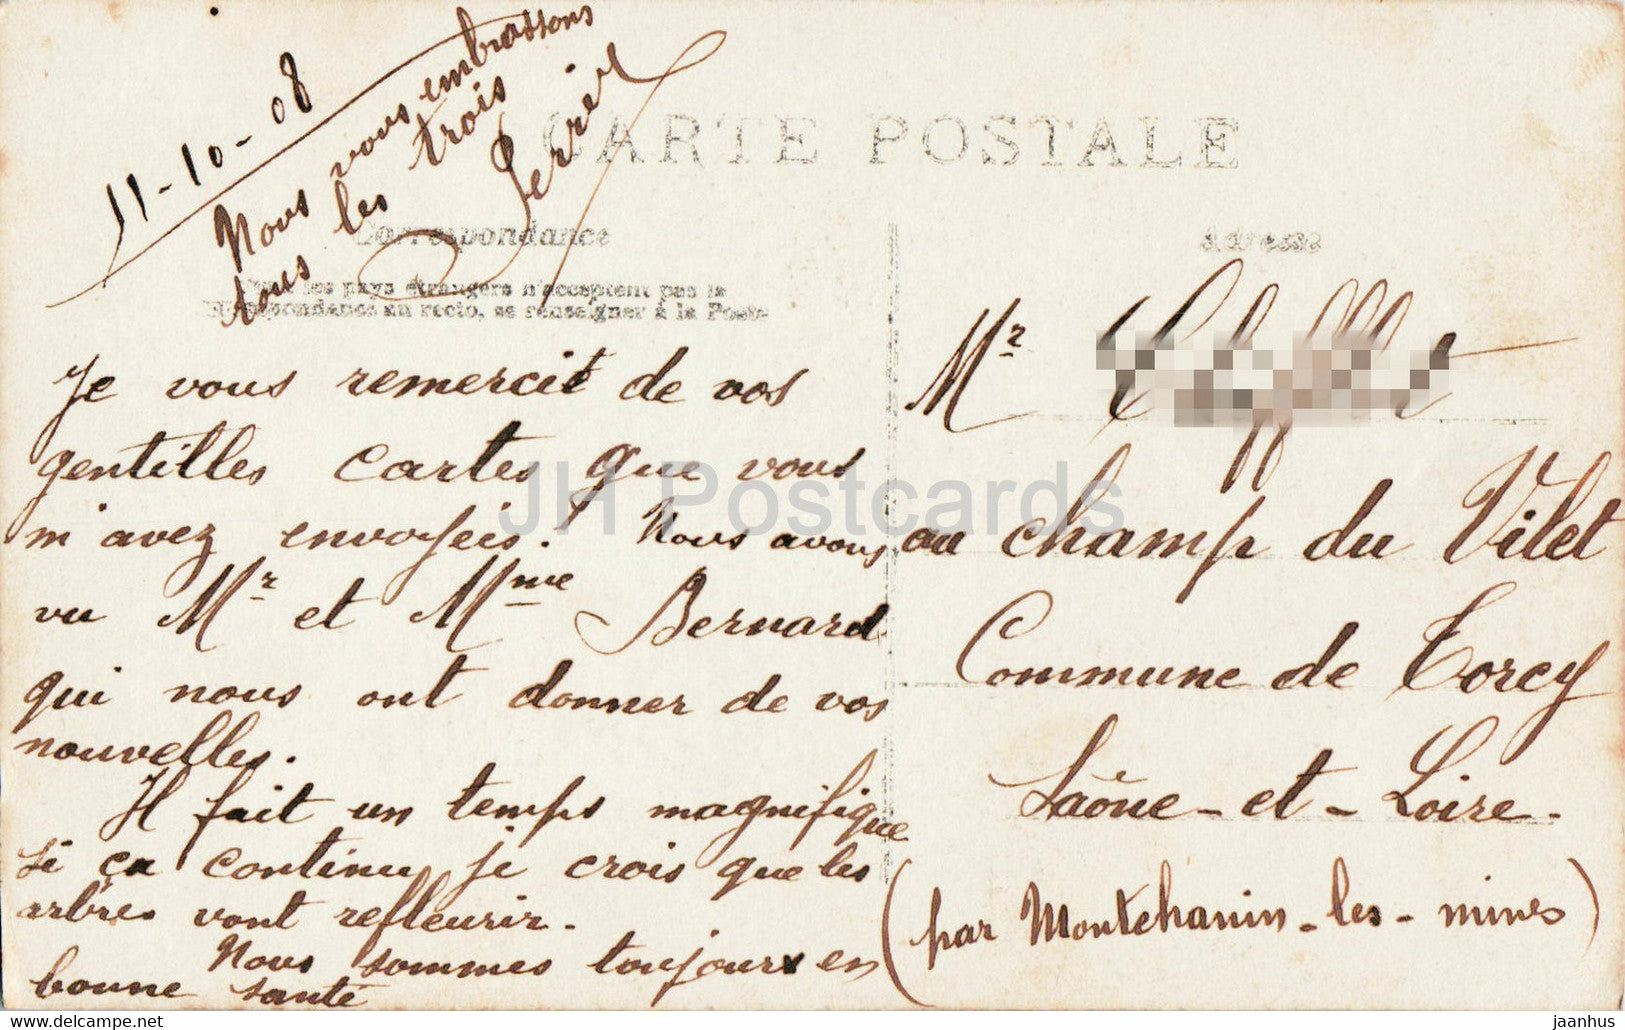 11-10-08
Nous vous embrassons
tous les trois
Perrier
CARTE POSTALE
Correspondance
Adresse
les pays étrangers n'acceptent pas la
correspondance au recto, se renseigner à la Poste
Je vous remercie de vos
gentilles cartes que vous
m'avez envoyeis. Nous avons
vu Mr et Mme Bernard
qui nous ont donner de vos
nouvelles.
Il fait un temps magnifique
si ça continu je crois que les
arbres vont refleurir.
Nous sommes toujours en
bonne santé
Mr
au champ du Vilet
Commune de Torcy
Saône-et-Loire.
(par Montchanin-les-mines)
JH Postcards
www.delcampe.net
jaanhus